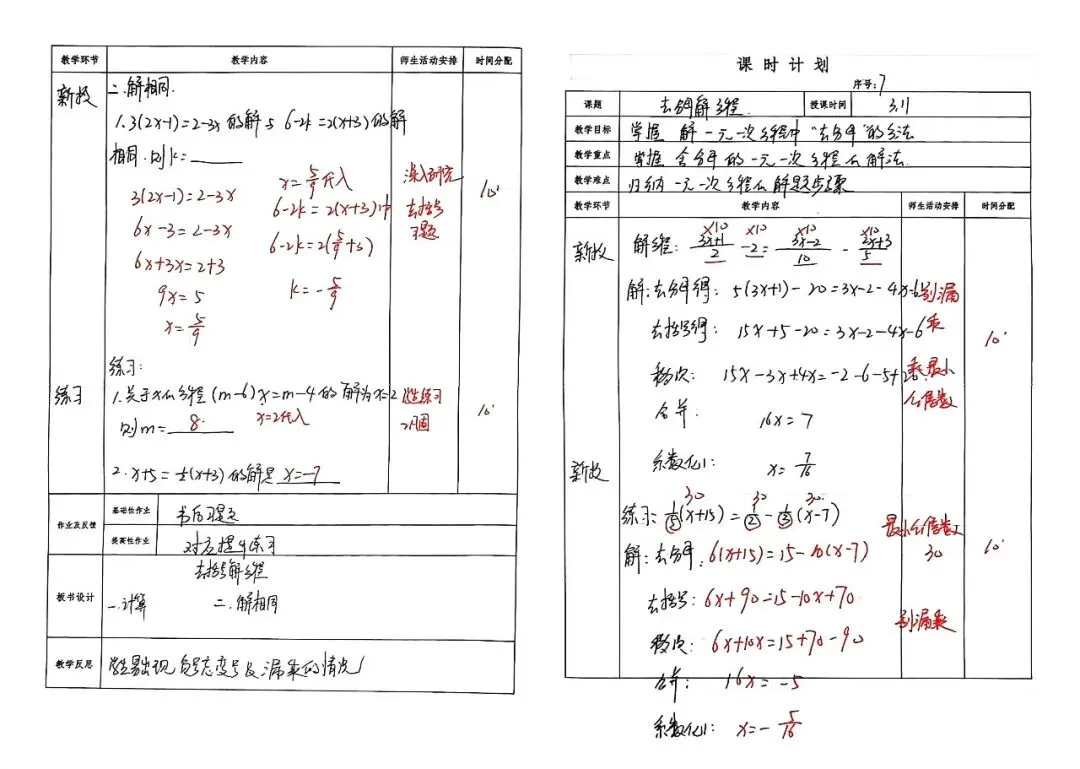 教学环节 教学内容 师生活动安排 时间分配
新授 二、解相同.
1. 3(2x-1)=2-3x 的解与 6-2k=2(x+3)的解
相同.则k=______
3(2x-1)=2-3x
6x-3=2-3x
6x+3x=2+3
9x=5
x=5/9
x=5/9代入
6-2k=2(x+3)中
6-2k=2(5/9+3)
k=-5/9
深入研究
去括号
习题
10'
练习:
练习 1.关于x的方程(m-6)x=m-4的解为x=2
则m=8. x=2代入
学生练习
巩固
10'
2. x+5=½(x+3)的解是 x=-7
作业及反馈
基础性作业 书后习题
提高性作业 对应提升练习
板书设计
去括号解方程
一.计算 二.解相同
教学反思 学生易出现负号忘变号及漏乘的情况!
课时计划
序号:7
课题 去分母解方程. 授课时间 3.11
教学目标 掌握 解一元一次方程中"去分母"的方法
教学重点 掌握含分母的一元一次方程的解法.
教学难点 归纳一元一次方程的解题步骤
教学环节 教学内容 师生活动安排 时间分配
×10 ×10 ×10 ×10
新授 解方程: (3x+1)/2 -2 = (3x-2)/10 - (2x+3)/5
解:去分母得: 5(3x+1)-20=3x-2-4x-6
去括号得: 15x+5-20=3x-2-4x-6
移项: 15x-3x+4x=-2-6-5+20.
合并. 16x=7
系数化1: x=7/16
别漏
乘
乘最小
公倍数
10'
新授
30 30 30.
练习: 1/5(x+15)=1/2-1/3(x-7)
解:去分母: 6(x+15)=15-10(x-7)
去括号: 6x+90=15-10x+70
移项: 6x+10x=15+70-90
合并: 16x=-5
系数化1: x=-5/16
最小公倍数
30
别漏乘
10'